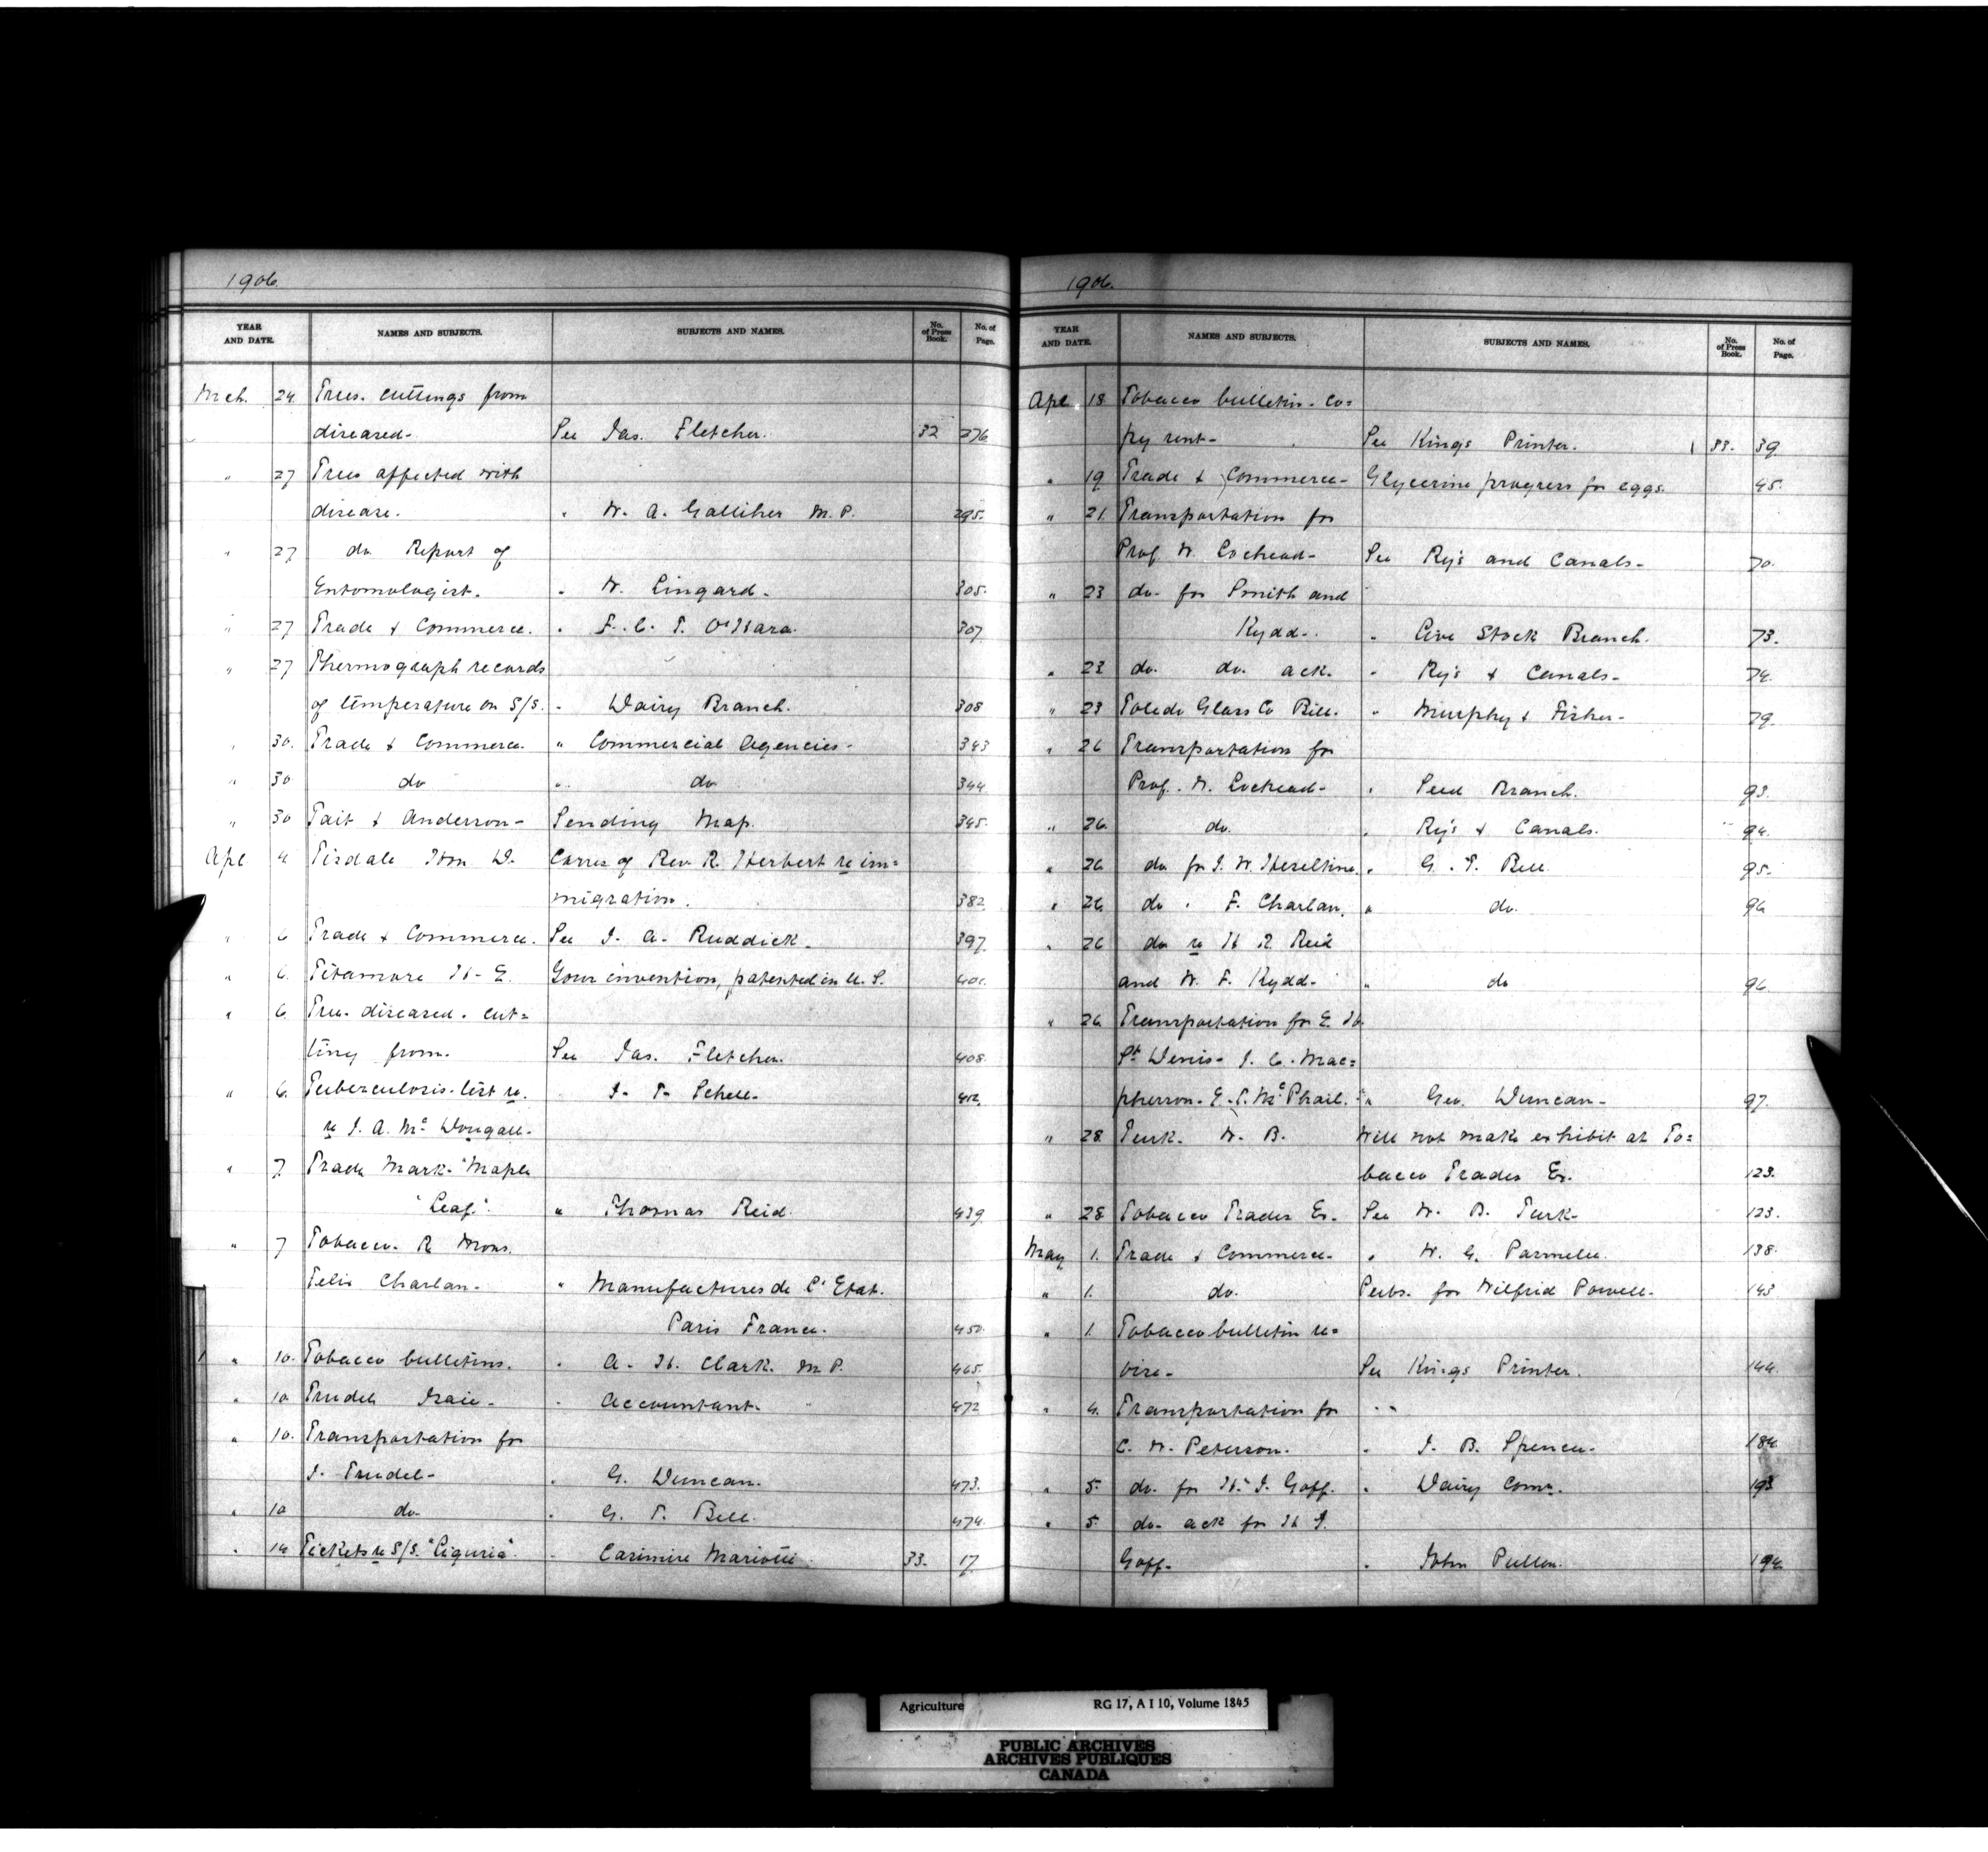 1906.
YEAR AND DATE. NAMES AND SUBJECTS. SUBJECTS AND NAMES. No. of Press Book. No. of Page.
Mch. 24 Trees. cuttings from
diseased- See Jas. Fletcher. 32 276
" 27 Trees affected with
disease. " W. A. Galliher M.P. 295.
" 27 do Report of
Entomologist. " W. Lingard. 305.
" 27 Trade & Commerce. " F. C. T. O'Hara. 307
" 27 Thermograph records
of temperature on S/S. " Dairy Branch. 308
" 30. Trade & Commerce. " Commercial Agencies- 343
" 30 do " do 344
" 30 Tait & Anderson- Sending Map. 345.
Apl 4 Tisdale Hon D. Corres of Rev R. Herbert re im=
migration. 382
" 6 Trade & Commerce. See J. A. Ruddick. 397
" 6. Titamore H. E. Your invention, patented in U.S.
" 6. Tree. diseased. cut=
ting from. See Jas. Fletcher. 408.
" 6. Tuberculosis-test re. " J. T. Schell- 412.
re J. A. Mc Dougall-
" 7. Trade Mark- "Maple
"Leaf". " Thomas Reid. 439
" 7 Tobacco- R Mons.
Felix Charlan- " Manufactures de l'Etat.
Paris France. 450.
" 10. Tobacco bulletins. " A. H. Clark. M P. 465.
" 10 Trudel Isaie- " Accountant- 472
" 10. Transportation for
I. Trudel- " G. Duncan. 473.
" 10 do " G. T. Bell. 474.
" 14 Tickets re S/S. "Liguria". " Casimire Mariotti. 33. 17
1906.
YEAR AND DATE. NAMES AND SUBJECTS. SUBJECTS AND NAMES. No. of Press Book. No. of Page.
Apl 18 Tobacco bulletin- co=
py sent- See Kings Printer. 33. 39
" 19 Trade & Commerce- Glycerine progress for eggs. 45.
" 21. Transportation for
Prof W. Lochead- See Ry's and Canals- 70.
" 23 do. for Smith and
Kydd-. " Live Stock Branch. 73.
" 23 do. do. ack. " Ry's & Canals- 74.
" 23 Toledo Glass Co Bill. " Murphy & Fisher- 79
" 26 Transportation for
Prof. W. Lochead- " Seed Branch. 93.
" 26. do. " Ry's & Canals. 94.
" 26 do for J. W. Heseltine. " G. T. Bell. 95.
" 26 do " F. Charlan. " do. 96
" 26 do re H R. Reid
and W. F. Kydd- " do 96.
" 26. Transportation for E. H.
St Denis- J. C. Mac=
pherson- E. S. Mc Phail. " Geo. Duncan- 97.
" 28 Turk. W. B. Will not make exhibit at To=
bacco Trades Ex. 123.
" 28 Tobacco Trades Ex. See W. B. Turk- 123.
May 1. Trade & Commerce- " W. G. Parmelee. 138.
" 1. do. Pubs. for Wilfrid Powell- 143
" 1. Tobacco bulletin re=
vise- See Kings Printer. 144.
" 4. Transportation for
C. W. Peterson. " J. B. Spencer- 184.
" 5. do. for H. J. Goff. " Dairy Comr. 193
" 5. do- ack for H J.
Goff- " John Pullen. 194.
Agriculture RG 17, A I 10, Volume 1845
PUBLIC ARCHIVES
ARCHIVES PUBLIQUES
CANADA